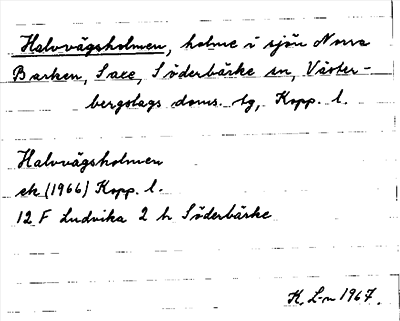 Halvvägsholmen, holme i sjön Norra
Barken, Saxe, Söderbärke sn, Väster-
bergslags doms. tg, Kopp. l.
Halvvägsholmen
ek (1966) Kopp. l.
12 F Ludvika 2 h Söderbärke
K. L-n 1967.